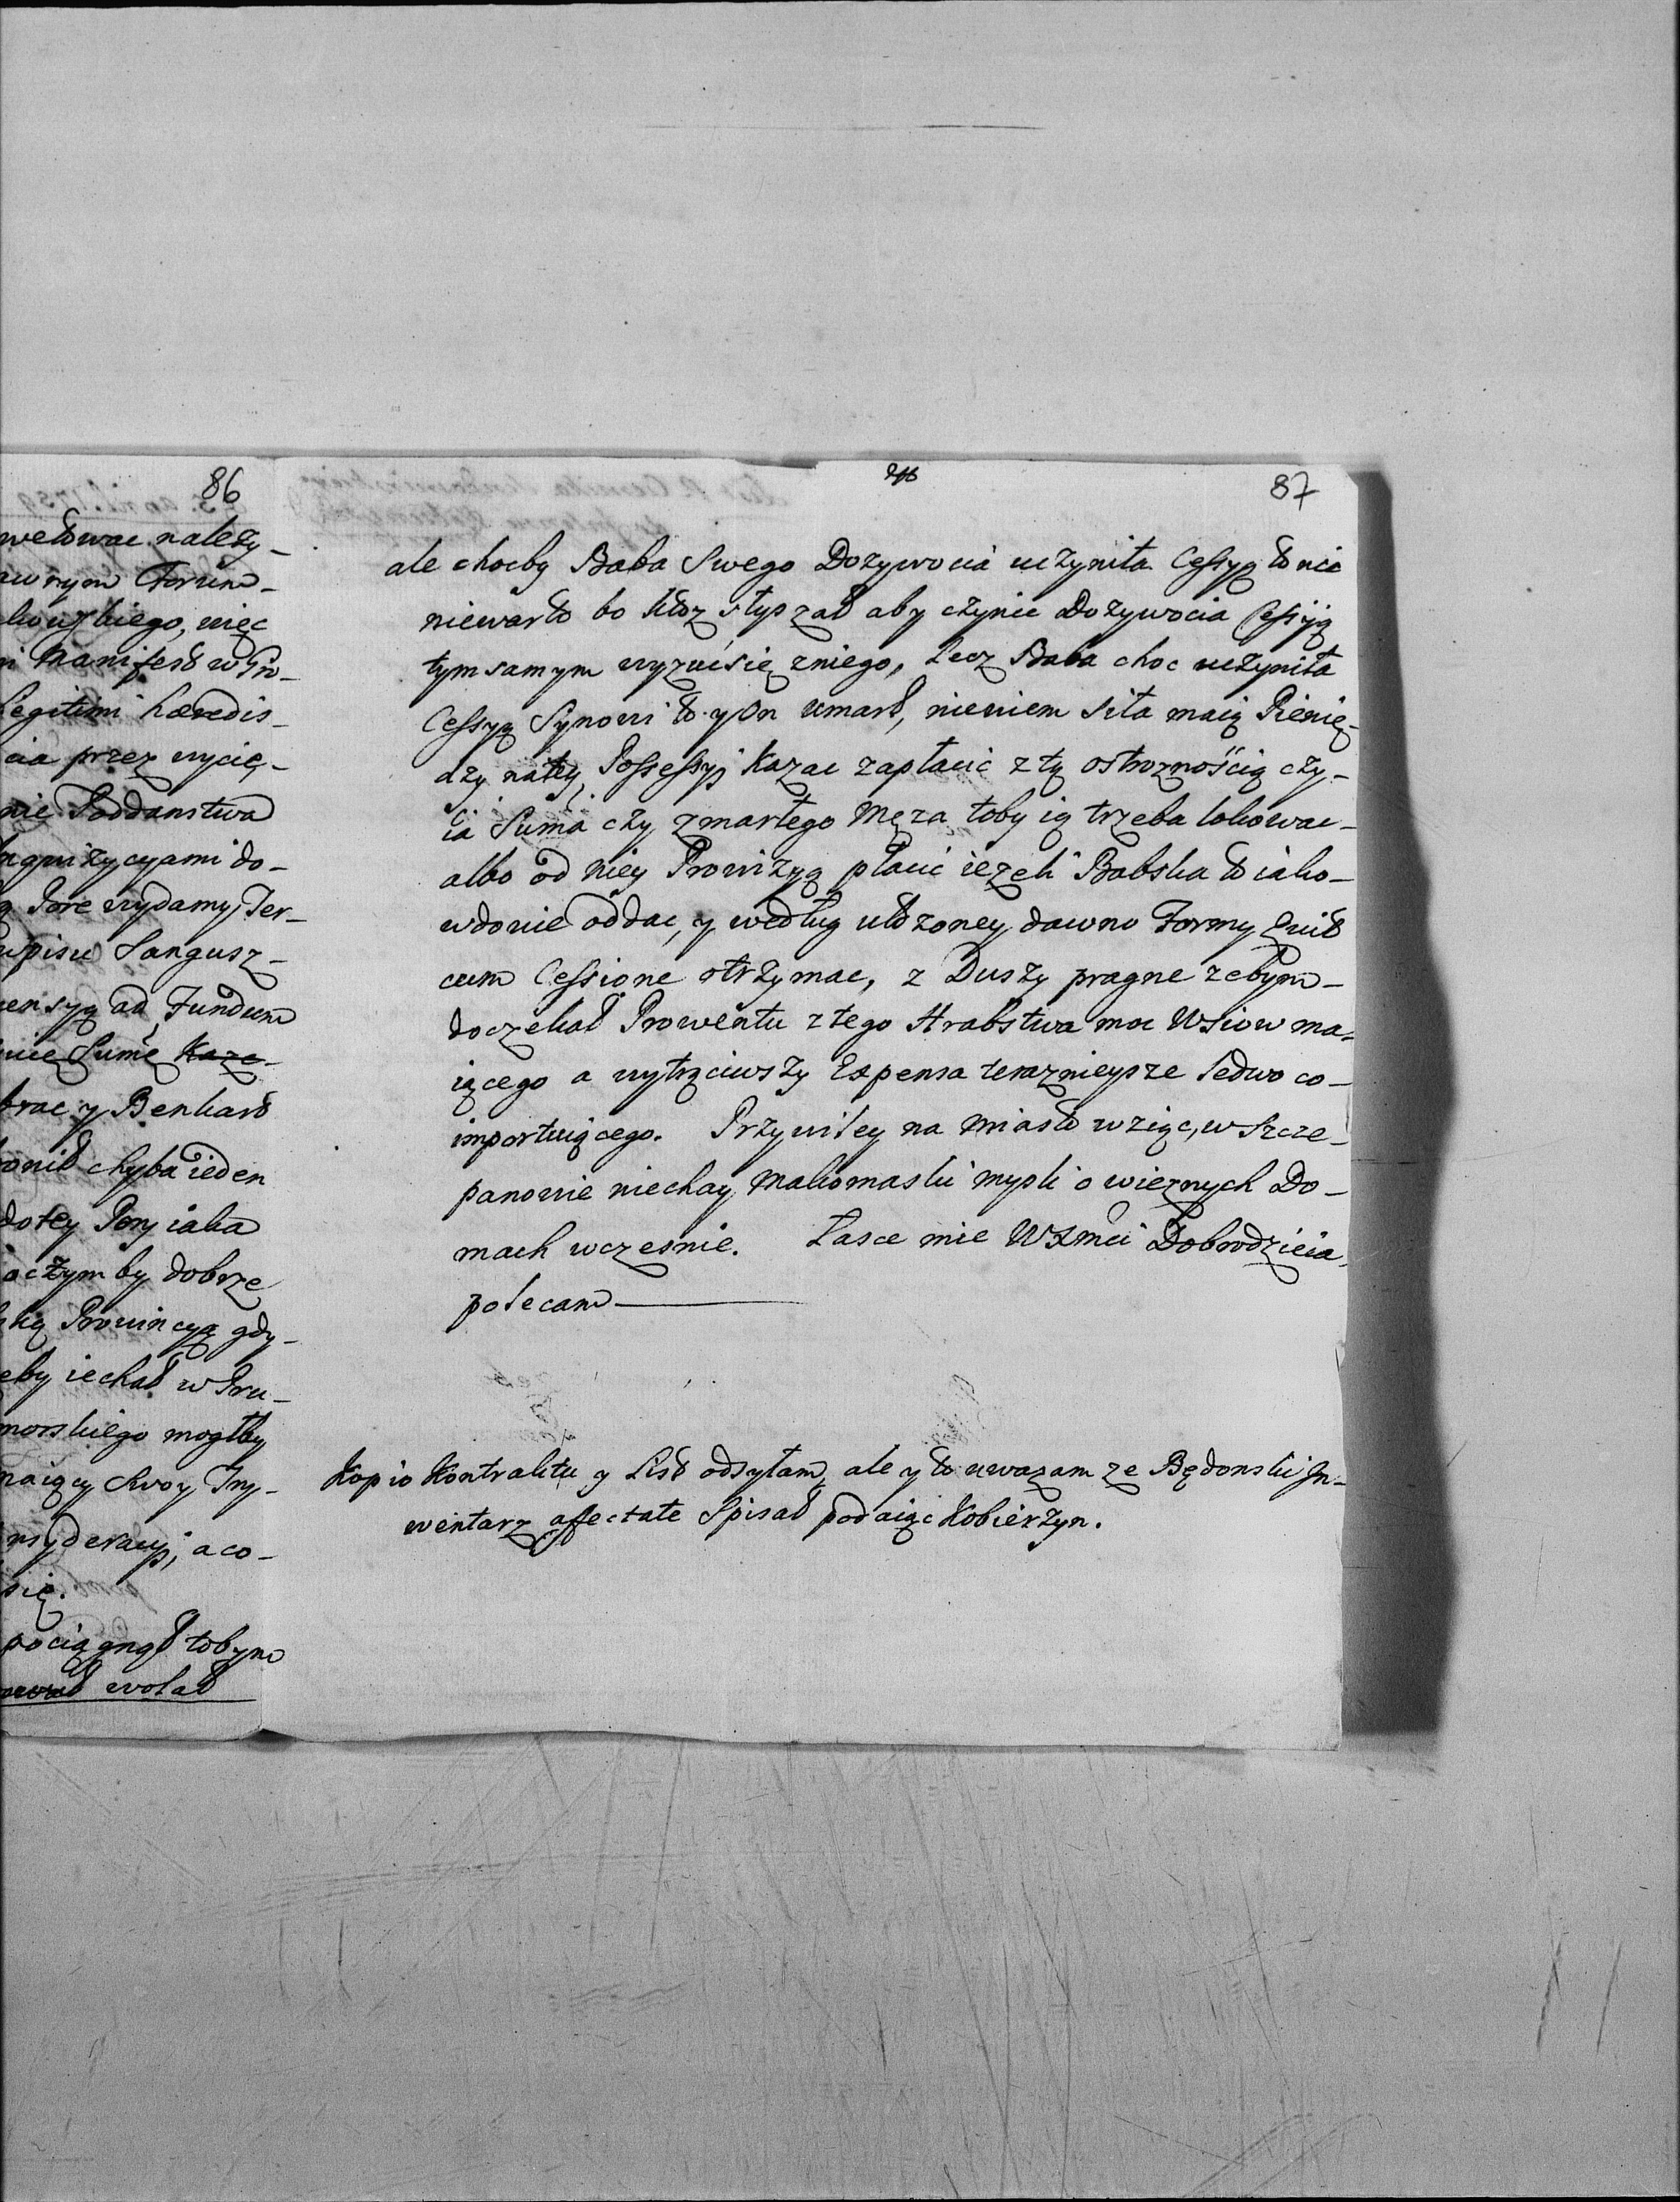 86
wetować należy-
awnym Forum-
kowskiego, więc
ni Manifest w Gro-
Legitimi hæredis-
cia przez wycię-
nie Poddanstwa
nqwizycyami do-
ą Pore wydamy Ter-
wpisu Sangusz-
ensyą ad Fundum
nie Sumę Kaze-
brac y Benkart
ronił chyba ieden
do tey Pory iaka
oczym by dobrze
ską Prowincyą gdy-
eby iechał w Pru-
morskiego mogłby
maiący swoy Try-
nsyderacyi, a co-
się.
pociągnął tobym
wołał
87
ale chocby Baba Swego Dozywocia uczyniła Cessyą to nic
niewarto bo ktoz słyszał aby czynic Dozywocia Cessyią
tym samym wyzuć się z niego, Lecz Baba choc uczyniła
Cessyą Synowi to y On umarł, niewiem siła maią Pienię-
dzy na tey Possessyi Kazac zapłacić z tą ostroznością czy-
ia Suma czy zmarłego Męza toby ią trzeba lokowac-
albo od niey Prowizyą płacić iezeli Babska to iako-
wdowie oddac, y według ułozoney dawno Formy Quit
cum Cessione otrzymac, z Duszy pragne zebym-
doczekał Prowentu z tego Hrabstwa moc Wsiow ma-
iącego a wytrąciwszy Expensa terazniejsze ledwo co-
importuiącego. Przywiley na miasto wziąc, w Szcze-
panowie niechay Makomaski mysli o wieznych Do-
mach wczesnie. Łasce mie WXMci Dobrodzieia
polecam
Kopio Kontraktu y List odsyłam, ale y to uwazam ze Będonski In-
wentarz affectate Spisał podaiąc Kobierzyn.